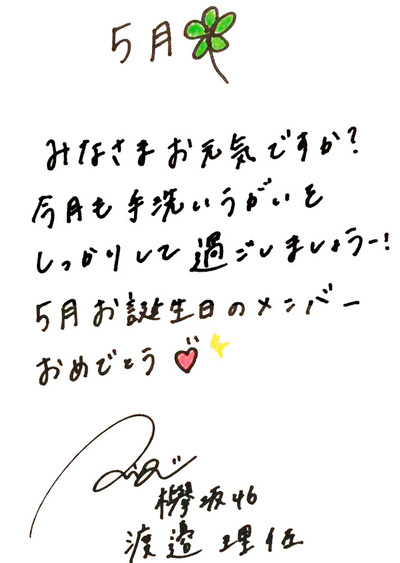 5月
みなさまお元気ですか?
今月も手洗いうがいを
しっかりして過ごしましょうー!
5月お誕生日のメンバー
おめでとう
欅坂46
渡邉理佐